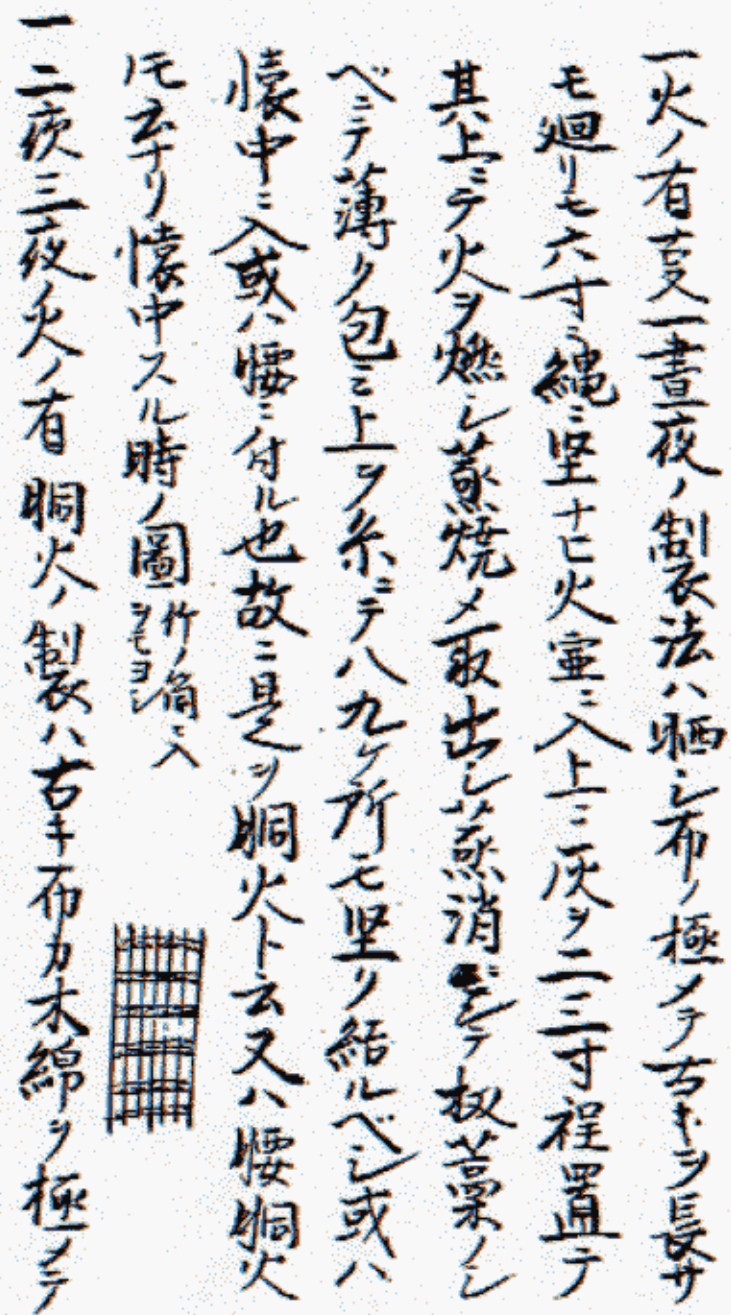 一火ノ有叓一晝夜ノ製法ハ晒シ布ノ極メテ古キヲ長サ
モ廻リモ六寸ニ縄ニ堅ナヒ火室ニ入上ニ灰ヲ二三寸程置テ
其上ニテ火ヲ燃シ蒸焼メ取出シ蒸消シテ扨藁ノシ
ベニテ薄ク包ミ上ヲ糸ニテ八九ケ所モ堅ク結ルベシ或ハ
懐中ニ入或ハ腰ニ付ル也故ニ是ヲ胴火ト云又ハ腰胴火
𪜈云ナリ懐中スル時ノ圖
竹ノ筒ニ入
ヲモヨシ
一二夜三夜火ノ有胴火ノ製ハ古キ布カ木綿ヲ極メテ